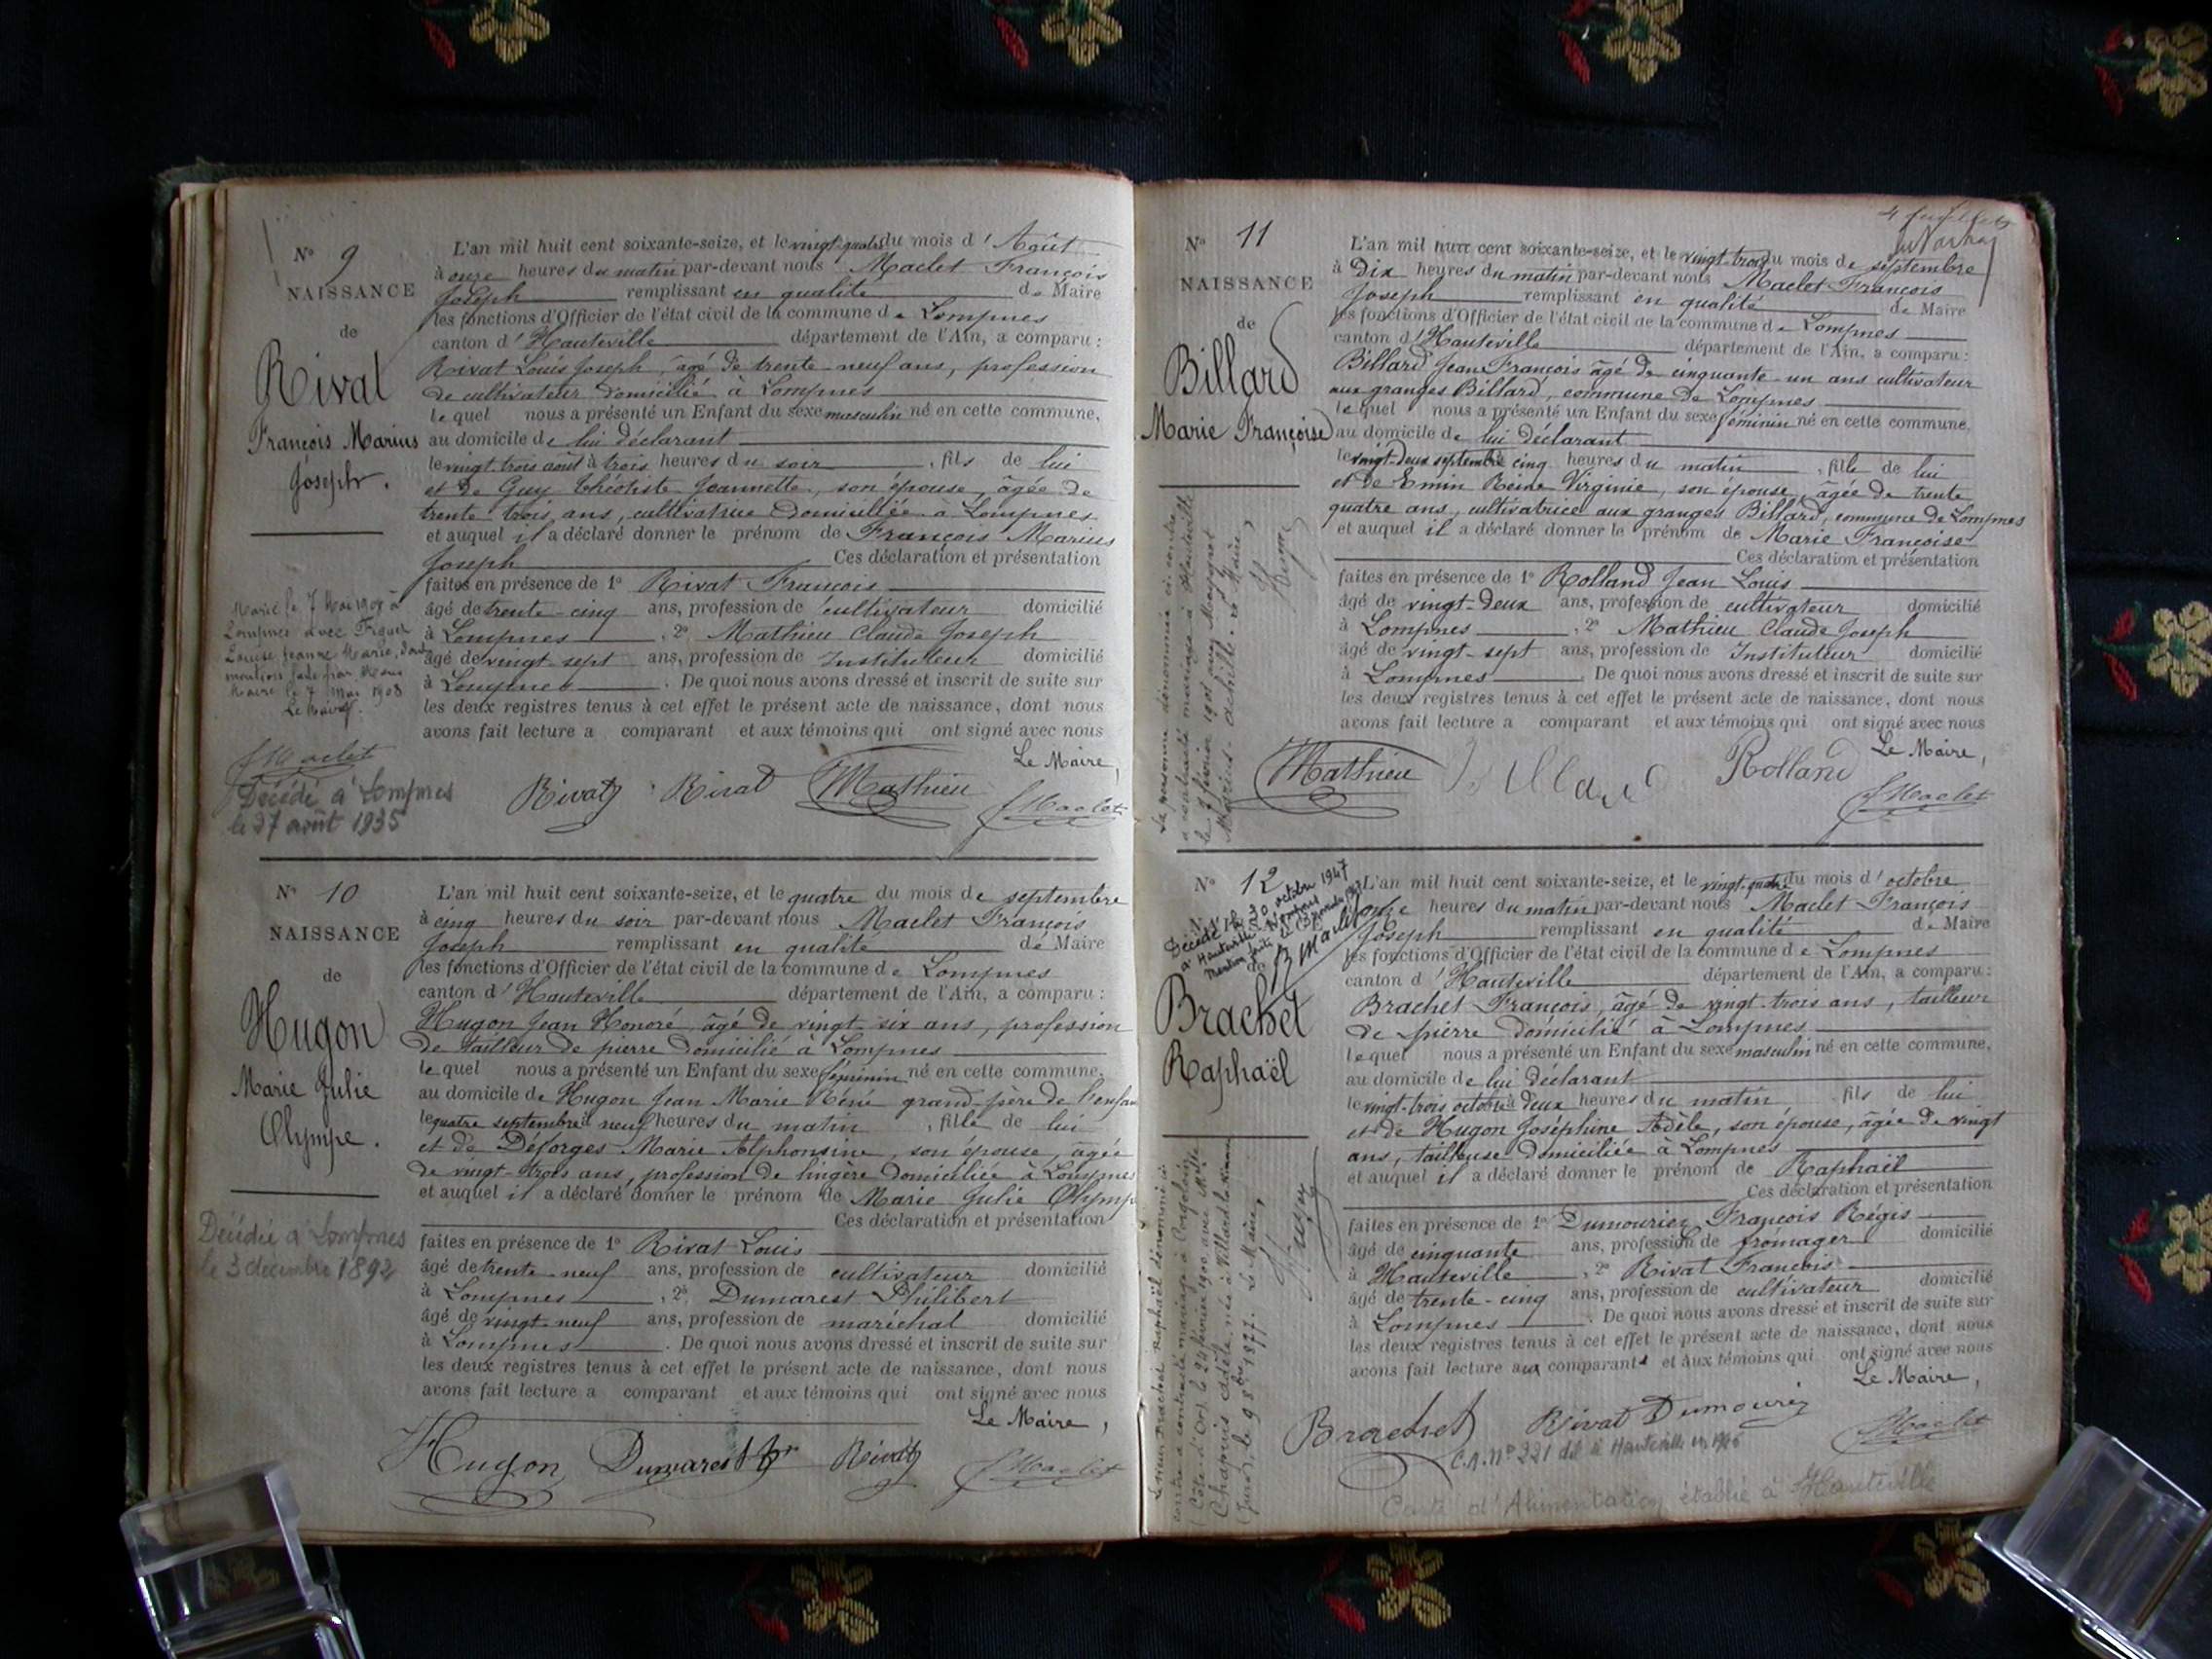 N° 9
NAISSANCE
de
Rivat
François Marius
Joseph.
Marié le 7 Mai 1908 à
Lompnes avec
Louise Jeanne Marie, dont
mention faite par Nous
Maire le 7 Mai 1908
Le Maire.
J Maclet
Décédé à Lompnes
le 27 août 1935
L'an mil huit cent soixante-seize, et le vingt-quatre du mois d'Août
à onze heures du matin par-devant nous Maclet François
Joseph remplissant en qualité de Maire
les fonctions d'Officier de l'état civil de la commune de Lompnes
canton d'Hauteville département de l'Ain, a comparu :
Rivat Louis Joseph, âgé de trente neuf ans, profession
de cultivateur domicilié à Lompnes
lequel nous a présenté un Enfant du sexe masculin né en cette commune,
au domicile de lui déclarant
le vingt-trois août à trois heures du soir, fils de lui
et de Guy Théotiste Jeannette, son épouse, âgée de
trente trois ans, cultivatrice domiciliée à Lompnes
et auquel il a déclaré donner le prénom de François Marius
Joseph Ces déclaration et présentation
faites en présence de 1° Rivat François
âgé de trente-cinq ans, profession de cultivateur domicilié
à Lompnes, 2° Mathieu Claude Joseph
âgé de vingt sept ans, profession de Instituteur domicilié
à Lompnes. De quoi nous avons dressé et inscrit de suite sur
les deux registres tenus à cet effet le présent acte de naissance, dont nous
avons fait lecture a comparant et aux témoins qui ont signé avec nous
Le Maire,
Rivat Rivat Mathieu J Maclet
N° 10
NAISSANCE
de
Hugon
Marie Julie
Olympe.
Décédée à Lompnes
le 3 décembre 1892
L'an mil huit cent soixante-seize, et le quatre du mois de septembre
à cinq heures du soir par-devant nous Maclet François
Joseph remplissant en qualité de Maire
les fonctions d'Officier de l'état civil de la commune de Lompnes
canton d'Hauteville département de l'Ain, a comparu :
Hugon Jean Honoré, âgé de vingt six ans, profession
de tailleur de pierre domicilié à Lompnes
lequel nous a présenté un Enfant du sexe féminin né en cette commune,
au domicile de Hugon Jean Marie René grand-père de l'enfant
le quatre septembre à neuf heures du matin, fille de lui
et de Déforges Marie Alphonsine, son épouse, âgée
de vingt-trois ans, profession de lingère domiciliée à Lompnes
et auquel il a déclaré donner le prénom de Marie Julie Olympe
Ces déclaration et présentation
faites en présence de 1° Rivat Louis
âgé de trente-neuf ans, profession de cultivateur domicilié
à Lompnes, 2° Dumarest Philibert
âgé de vingt-neuf ans, profession de maréchal domicilié
à Lompnes. De quoi nous avons dressé et inscrit de suite sur
les deux registres tenus à cet effet le présent acte de naissance, dont nous
avons fait lecture a comparant et aux témoins qui ont signé avec nous
Le Maire,
Hugon Dumarest Rivat J Maclet
N° 11
NAISSANCE
de
Billard
Marie Françoise
La personne dénommée ci-contre
a contracté mariage à Hauteville
le 7 février 1901 avec
Marius Achille. Le Maire,
L'an mil huit cent soixante-seize, et le vingt-trois du mois de septembre
à Dix heures du matin par-devant nous Maclet François
Joseph remplissant en qualité de Maire
les fonctions d'Officier de l'état civil de la commune de Lompnes
canton d'Hauteville département de l'Ain, a comparu :
Billard Jean François âgé de cinquante-un ans cultivateur
aux granges Billard, commune de Lompnes
lequel nous a présenté un Enfant du sexe féminin né en cette commune,
au domicile de lui déclarant
le vingt-deux septembre cinq heures du matin, fille de lui
et de Emin Reine Virginie, son épouse, âgée de trente
quatre ans, cultivatrice aux granges Billard, commune de Lompnes
et auquel il a déclaré donner le prénom de Marie Françoise
Ces déclaration et présentation
faites en présence de 1° Rolland Jean Louis
âgé de vingt-deux ans, profession de cultivateur domicilié
à Lompnes, 2° Mathieu Claude Joseph
âgé de vingt-sept ans, profession de Instituteur domicilié
à Lompnes. De quoi nous avons dressé et inscrit de suite sur
les deux registres tenus à cet effet le présent acte de naissance, dont nous
avons fait lecture a comparant et aux témoins qui ont signé avec nous
Le Maire,
Mathieu Billard Rolland J Maclet
N° 12
Décédé le 30 octobre 1947
à Hauteville-Lompnes
Mention faite le
NAISSANCE
de
Brachet
Raphaël
Le sieur Brachet Raphaël dénommé ci-
contre a contracté mariage à Corgoloin
(Côte-d'Or) le 24 février 1910 avec Melle
Chapuis Adèle, née à Villard
(Jura), le 9 8bre 1877. Le Maire,
L'an mil huit cent soixante-seize, et le vingt-quatre du mois d'octobre
heures du matin par-devant nous Maclet François
Joseph remplissant en qualité de Maire
les fonctions d'Officier de l'état civil de la commune de Lompnes
canton d'Hauteville département de l'Ain, a comparu :
Brachet François, âgé de vingt-trois ans, tailleur
de pierre domicilié à Lompnes
lequel nous a présenté un Enfant du sexe masculin né en cette commune,
au domicile de lui déclarant
le vingt-trois octobre à deux heures du matin, fils de lui
et de Hugon Joséphine Adèle, son épouse, âgée de vingt
ans, tailleuse domiciliée à Lompnes
et auquel il a déclaré donner le prénom de Raphaël
Ces déclaration et présentation
faites en présence de 1° Dumouriez François Régis
âgé de cinquante ans, profession de fromager domicilié
à Hauteville, 2° Rivat François
âgé de trente-cinq ans, profession de cultivateur domicilié
à Lompnes. De quoi nous avons dressé et inscrit de suite sur
les deux registres tenus à cet effet le présent acte de naissance, dont nous
avons fait lecture aux comparants et aux témoins qui ont signé avec nous
Le Maire,
Brachet Rivat Dumouriez J Maclet
C.A. n° 221 dél. à Hauteville en 1946
Carte d'Alimentation établie à Hauteville